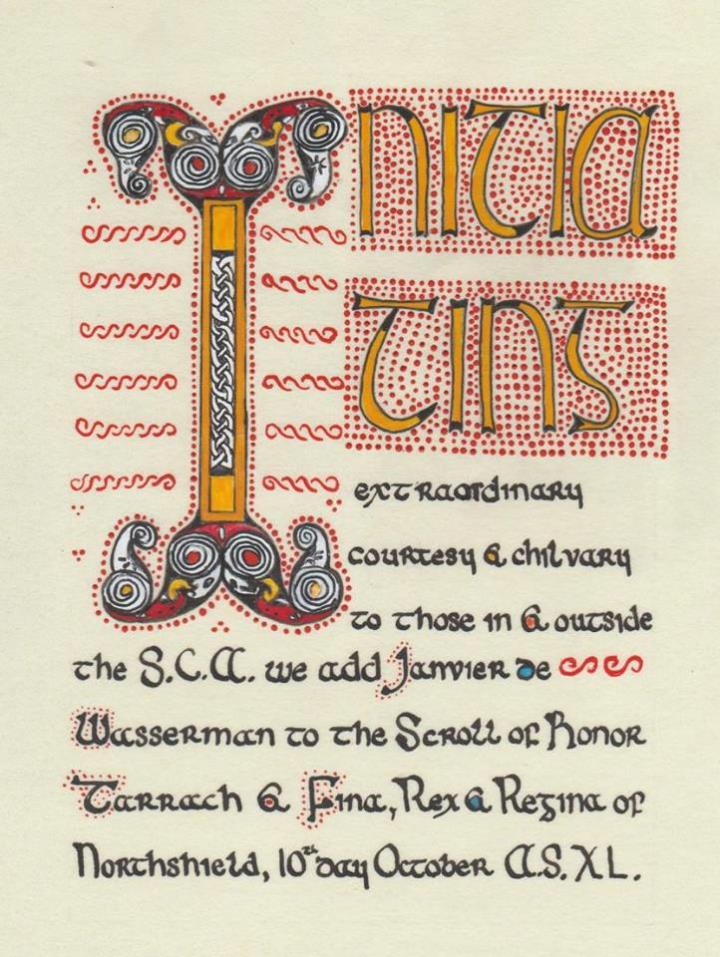 INITIA
TING
extraordinary
courtesy & chilvary
to those in & outside
the S.C.A. we add Janvier de
Wasserman to the Scroll of Honor
Tarrach & Fina, Rex & Regina of
Northshield, 10th day October A.S. XL.